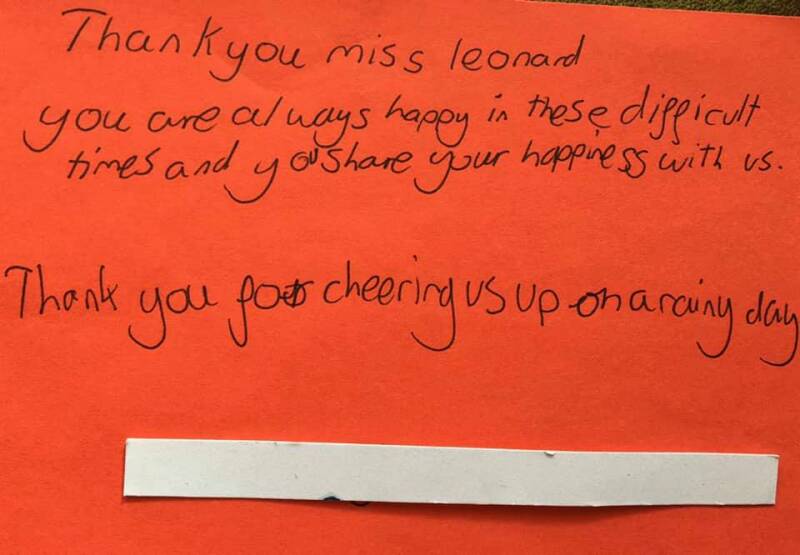 Thankyou miss leonard
you are always happy in these difficult
times and you share your happiness with us.
Thank you for cheering us up on a rainy day